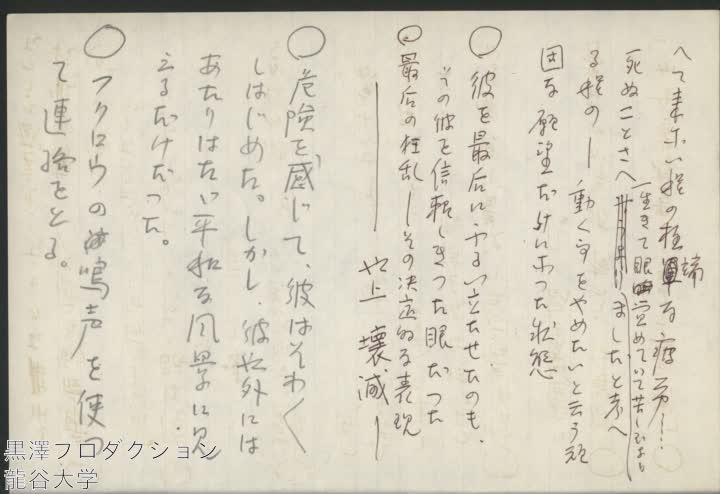 へて来ない程の極端な疲労…
死ぬことさへ 生きて眼覚めていて苦しむより
ましだと考へ
る程の―動く事をやめたいと云う頑
固な願望だけになった状態
○彼を最后にふるい立たせたのも、
その彼を信頼しきった眼だった
○最后の狂乱―その決定的な表現
以上 壊滅―
○危険を感じて、彼はそわ〱
しはじめた。しかし、彼以外には
あたりはたゞ平和な風景に見
えるだけだった。
○フクロウの鳴声を使っ
て連絡をとる。
黒澤プロダクション
龍谷大学